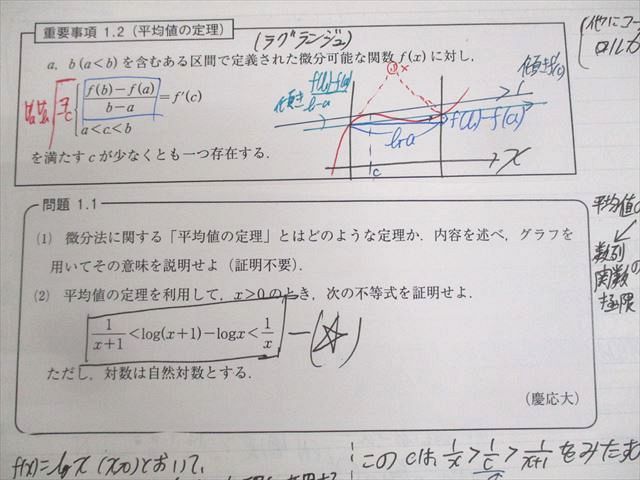 重要事項 1.2 (平均値の定理)
(ラグランジュ)
a, b(a<b) を含むある区間で定義された微分可能な関数 f(x) に対し,
f(b)-f(a)
b-a
=f′(c)
a<c<b
を満たす c が少なくとも一つ存在する.
傾き f(b)-f(a)
b-a
傾き f'(c)
f(b)-f(a)
b-a
c
x
(他にコー
ロルカ
問題 1.1
(1) 微分法に関する「平均値の定理」とはどのような定理か. 内容を述べ, グラフを
用いてその意味を説明せよ (証明不要).
(2) 平均値の定理を利用して, x>0 のとき, 次の不等式を証明せよ.
1/(x+1) <log(x+1)-logx< 1/x —(☆)
ただし, 対数は自然対数とする.
(慶応大)
平均値の
数列
関数の
極限
f(x)=log x (x>0)とおいて,
この cは 1/x > 1/c > 1/(x+1) をみたす